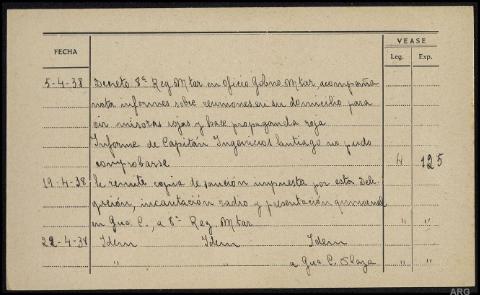 VEASE
FECHA
Leg. Exp.
5-4-38 Decreto 8ª Reg. Mtar en oficio Gobno Mtar, acompaña
nota informes sobre reuniones en su domicilio para
oir misoras rojas y hace propaganda roja
Informe de Capitán Ingenieros Santiago no pudo
comprobarse 4 125
19-4-38 Se remite copia de sanción impuesta por esta Dele-
gación, incautación radio y presentación quincenal
en Gua C., a 8ª Reg. Mtar " "
22-4-38 Idem Idem Idem
" " a Gua C. Plaza " "
ARG